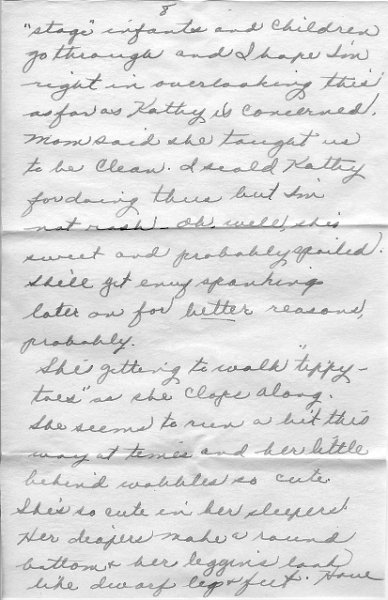 8
"stage" infants and children
go through and I hope I'm
right in overlooking this
as far as Kathy is concerned.
Mom said she taught us
to be clean. I scold Kathy
for doing thus but I'm
not rash. Oh, well, she's
sweet and probably spoiled.
She'll get enuy spanking
later on for better reasons,
probably.
She's getting to walk "tippy-
toes" as she clops along.
She seems to run a bit this
way at times and her little
behind wobbles so cute.
She's so cute in her sleepers.
Her diapers make a round
bottom & her leggins look
like dwarf leg & feet. Have